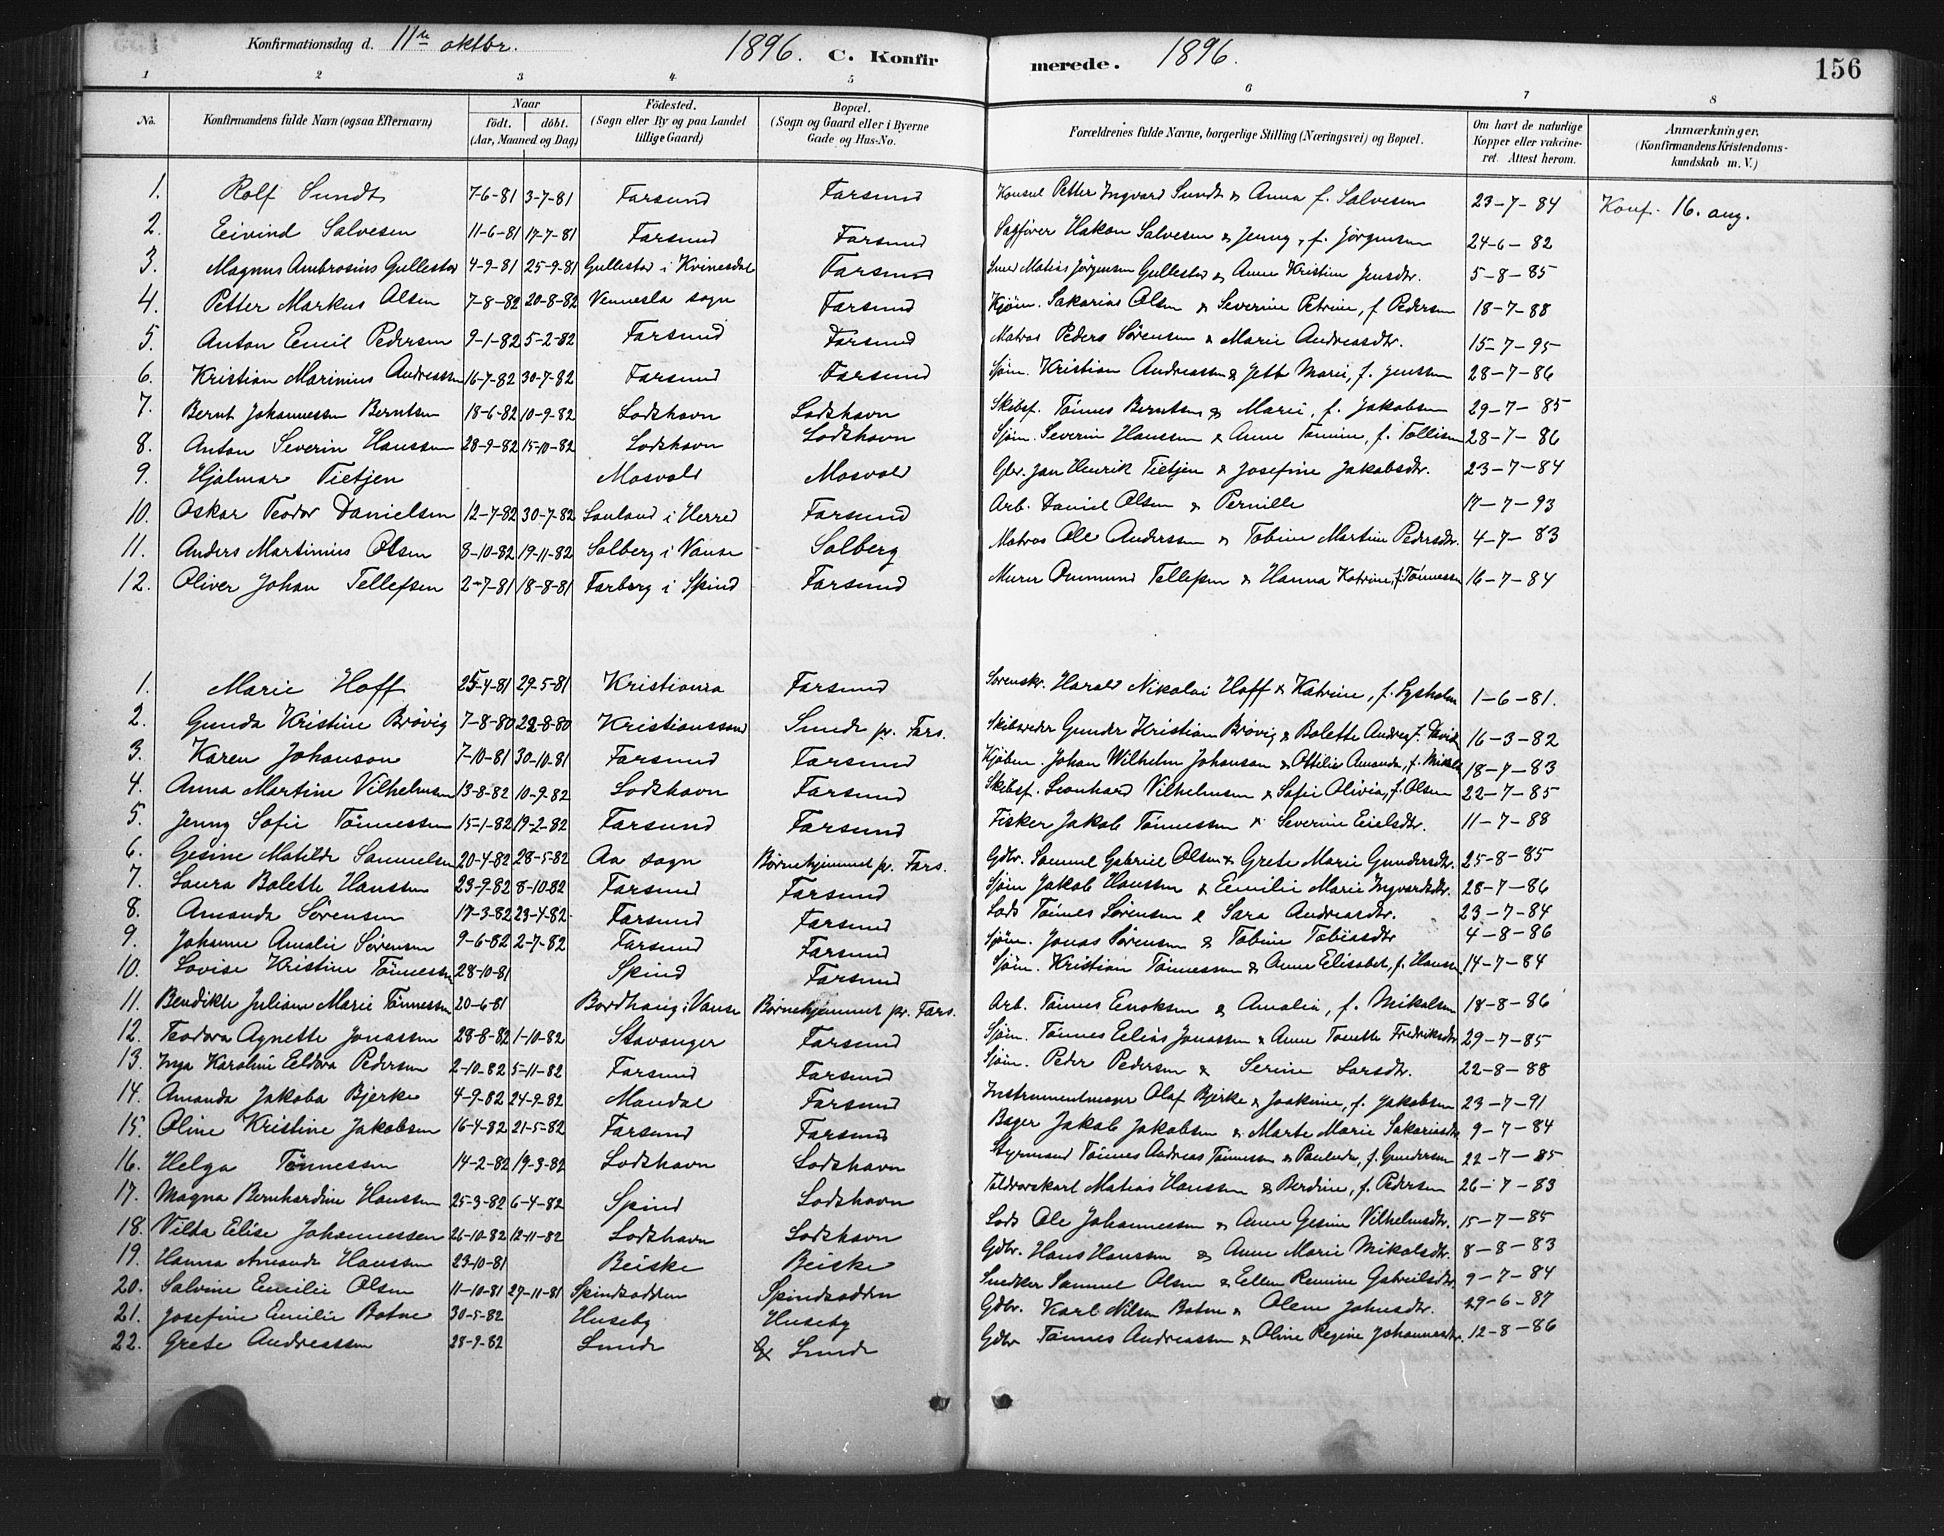 Konfirmationsdag d. 11te oktbr. 1896. C. Konfirmerede. 1896. 156
1 2 3 4 5 6 7 8
No. Konfirmandens fulde Navn (ogsaa Efternavn) Naar födt. döbt. (Aar, Maaned og Dag) Födested. (Sogn eller By og paa Landet tillige Gaard) Bopæl. (Sogn og Gaard eller i Byerne Gade og Hus-No. Forældrenes fulde Navne, borgerlige Stilling (Næringsvei) og Bopæl. Om havt de naturlige Kopper eller vakcineret. Attest herom. Anmærkninger. (Konfirmandens Kristendomskundskab m. V.)
1. Rolf Sundt 7-6-81 3-7-81 Farsund Farsund Konsul Petter Ingvard Sundt & Anna f. Salvesen 23-7-84 Konf. 16. aug.
2. Eivind Salvesen 11-6-81 17-7-81 Farsund Farsund Sagfører Hakon Salvesen & Jenny, f. Jörgensen 24-6-82
3. Magnus Ambrosius Gullestad 4-9-81 25-9-81 Gullestad i Kvinesdal Farsund Smed Matias Jörgensen Gullestad & Anne Kristine Jensdtr. 5-8-85
4. Petter Markus Olsen 7-8-82 20-8-82 Vennesla sogn Farsund Kjöm. Sakarias Olsen & Severine Petrine, f. Pedersen 18-7-88
5. Anton Emil Pedersen 9-1-82 5-2-82 Farsund Farsund Matros Peders Sörensen & Marie Andreasdtr. 15-7-95
6. Kristian Marinius Andreassen 16-7-82 30-7-82 Farsund Farsund Sjöm. Kristian Andreassen & Jette Marie, f. Jenssen 28-7-86
7. Bernt Johannessen Berntsen 18-6-82 10-9-82 Lodshavn Lodshavn Skibsf. Tönnes Berntsen & Marie, f. Jakobsen 29-7-85
8. Anton Severin Hanssen 28-9-82 15-10-82 Lodshavn Lodshavn Sjöm. Severin Hanssen & Anne Tomine, f. Tollisen 28-7-86
9. Hjalmar Tietjen Mosvold Mosvold Gbr. Jan Henrik Tietjen & Josefine Jakobsdtr. 23-7-84
10. Oskar Teodor Danielsen 12-7-82 30-7-82 Lauland i Herred Farsund Arb. Daniel Olsen & Pernille 17-7-93
11. Anders Martinius Olsen 8-10-82 19-11-82 Solberg i Vanse Solberg Matros Ole Andersen & Tobine Martine Pedersdtr. 4-7-83
12. Oliver Johan Tellefsen 2-7-81 18-8-81 Farberg i Spind Farsund Murer Ommund Tellefsen & Hanna Katrine, f. Tönnessen 16-7-84
1. Marie Hoff 25-4-81 29-5-81 Kristiania Farsund Sorenskr. Harald Nikolai Hoff & Katrine, f. Lysholm 1-6-81.
2. Gunda Kristine Brövig 7-8-80 22-8-80 Kristianssand Sunde pr. Fars. Skibsreder Gunder Kristian Brövig & Bolette Andrea, f. 16-3-82
3. Karen Johanson 7-10-81 30-10-81 Farsund Farsund Kjöbm. Johan Wilhelm Johanson & Ottilie Amanda, f. 18-7-83
4. Anna Martine Vilhelmsen 13-8-82 10-9-82 Lodshavn Farsund Skibsf. Leonhard Vilhelmsen & Sofie Olivia, f. Olsen 22-7-85
5. Jenny Sofie Tönnessen 15-1-82 19-2-82 Farsund Farsund Fisker Jakob Tönnessen & Severine Eielsdtr. 11-7-88
6. Gesine Matilde Samuelsen 20-4-82 28-5-82 Aa sogn Börnehjemmet pr. Fars. Gdbr. Samuel Gabriel Olsen & Grete Marie Gundersdtr. 25-8-85
7. Laura Bolette Hanssen 23-9-82 8-10-82 Farsund Farsund Sjöm Jakob Hanssen & Emilie Marie Ingvardsdtr. 28-7-86
8. Amanda Sörensen 17-3-82 23-4-82 Farsund Farsund Lods Tönnes Sörensen & Sara Andreasdtr. 23-7-84
9. Johanne Amalie Sörensen 9-6-82 2-7-82 Farsund Farsund Sjöm. Jonas Sörensen & Tobine Tobiasdtr 4-8-86
10. Lovise Kristine Tönnessen 28-10-81 Spind Farsund Sjöm. Kristian Tönnessen & Anne Elisabet, f. Hanssen 14-7-84
11. Bendikte Juliane Marie Tönnessen 20-6-81 Bordhaug i Vanse Börnehjemmet pr. Fars. Arb. Tönnes Enoksen & Amalia, f. Mikalsen 18-8-86
12. Teodora Agnette Jonassen 28-8-82 1-10-82 Stavanger Farsund Sjöm. Tönnes Elias Jonassen & Anne Tonette Fredriksdtr 29-7-85
13. Inga Karoline Eldora Pedersen 2-10-82 5-11-82 Farsund Farsund Sjöm. Peder Pedersen & Serine Larsdtr. 22-8-88
14. Amanda Jakoba Bjerke 4-9-82 24-9-82 Mandal Farsund Instrumentmager Olaf Bjerke & Joakime, f. Jakobsen 23-7-91
15. Oline Kristine Jakobsen 16-4-82 21-5-82 Farsund Farsund Bager Jakob Jakobsen & Marte Marie Sakariasdtr 9-7-84
16. Helga Tönnessen 14-2-82 19-3-82 Lodshavn Lodshavn Styrmand Tönnes Andreas Tönnessen & Paulude, f. Gundersen 22-7-85
17. Magna Bernhardine Hanssen 25-3-82 6-4-82 Spind Lodshavn Toldvorskarl Matias Hanssen & Berdine, f. Pedersen 26-7-83
18. Vilda Elise Johannessen 26-10-82 12-11-82 Lodshavn Lodshavn Lods Ole Johannessen & Anne Gesine Vilhelmsdtr. 15-7-85
19. Hanna Amanda Hanssen 23-10-81 Beiske Beiske Gdbr. Hans Hanssen & Anne Marie Mikalsdtr. 8-8-83
20. Salvine Emilie Olsen 11-10-81 27-11-81 Spindsodden Spindsodden Snedker Samuel Olsen & Ellen Remine Gabrielsdtr 9-7-84
21. Josefine Emilie Botne 30-5-82 Huseby Huseby Gdbr. Karl Nilsen Botne & Olene Johnsdtr. 29-6-87
22. Grete Andreassen 28-9-82 Lunde Lunde Gdbr Tönnes Andreassen & Oline Regine Johannesdtr. 12-8-86